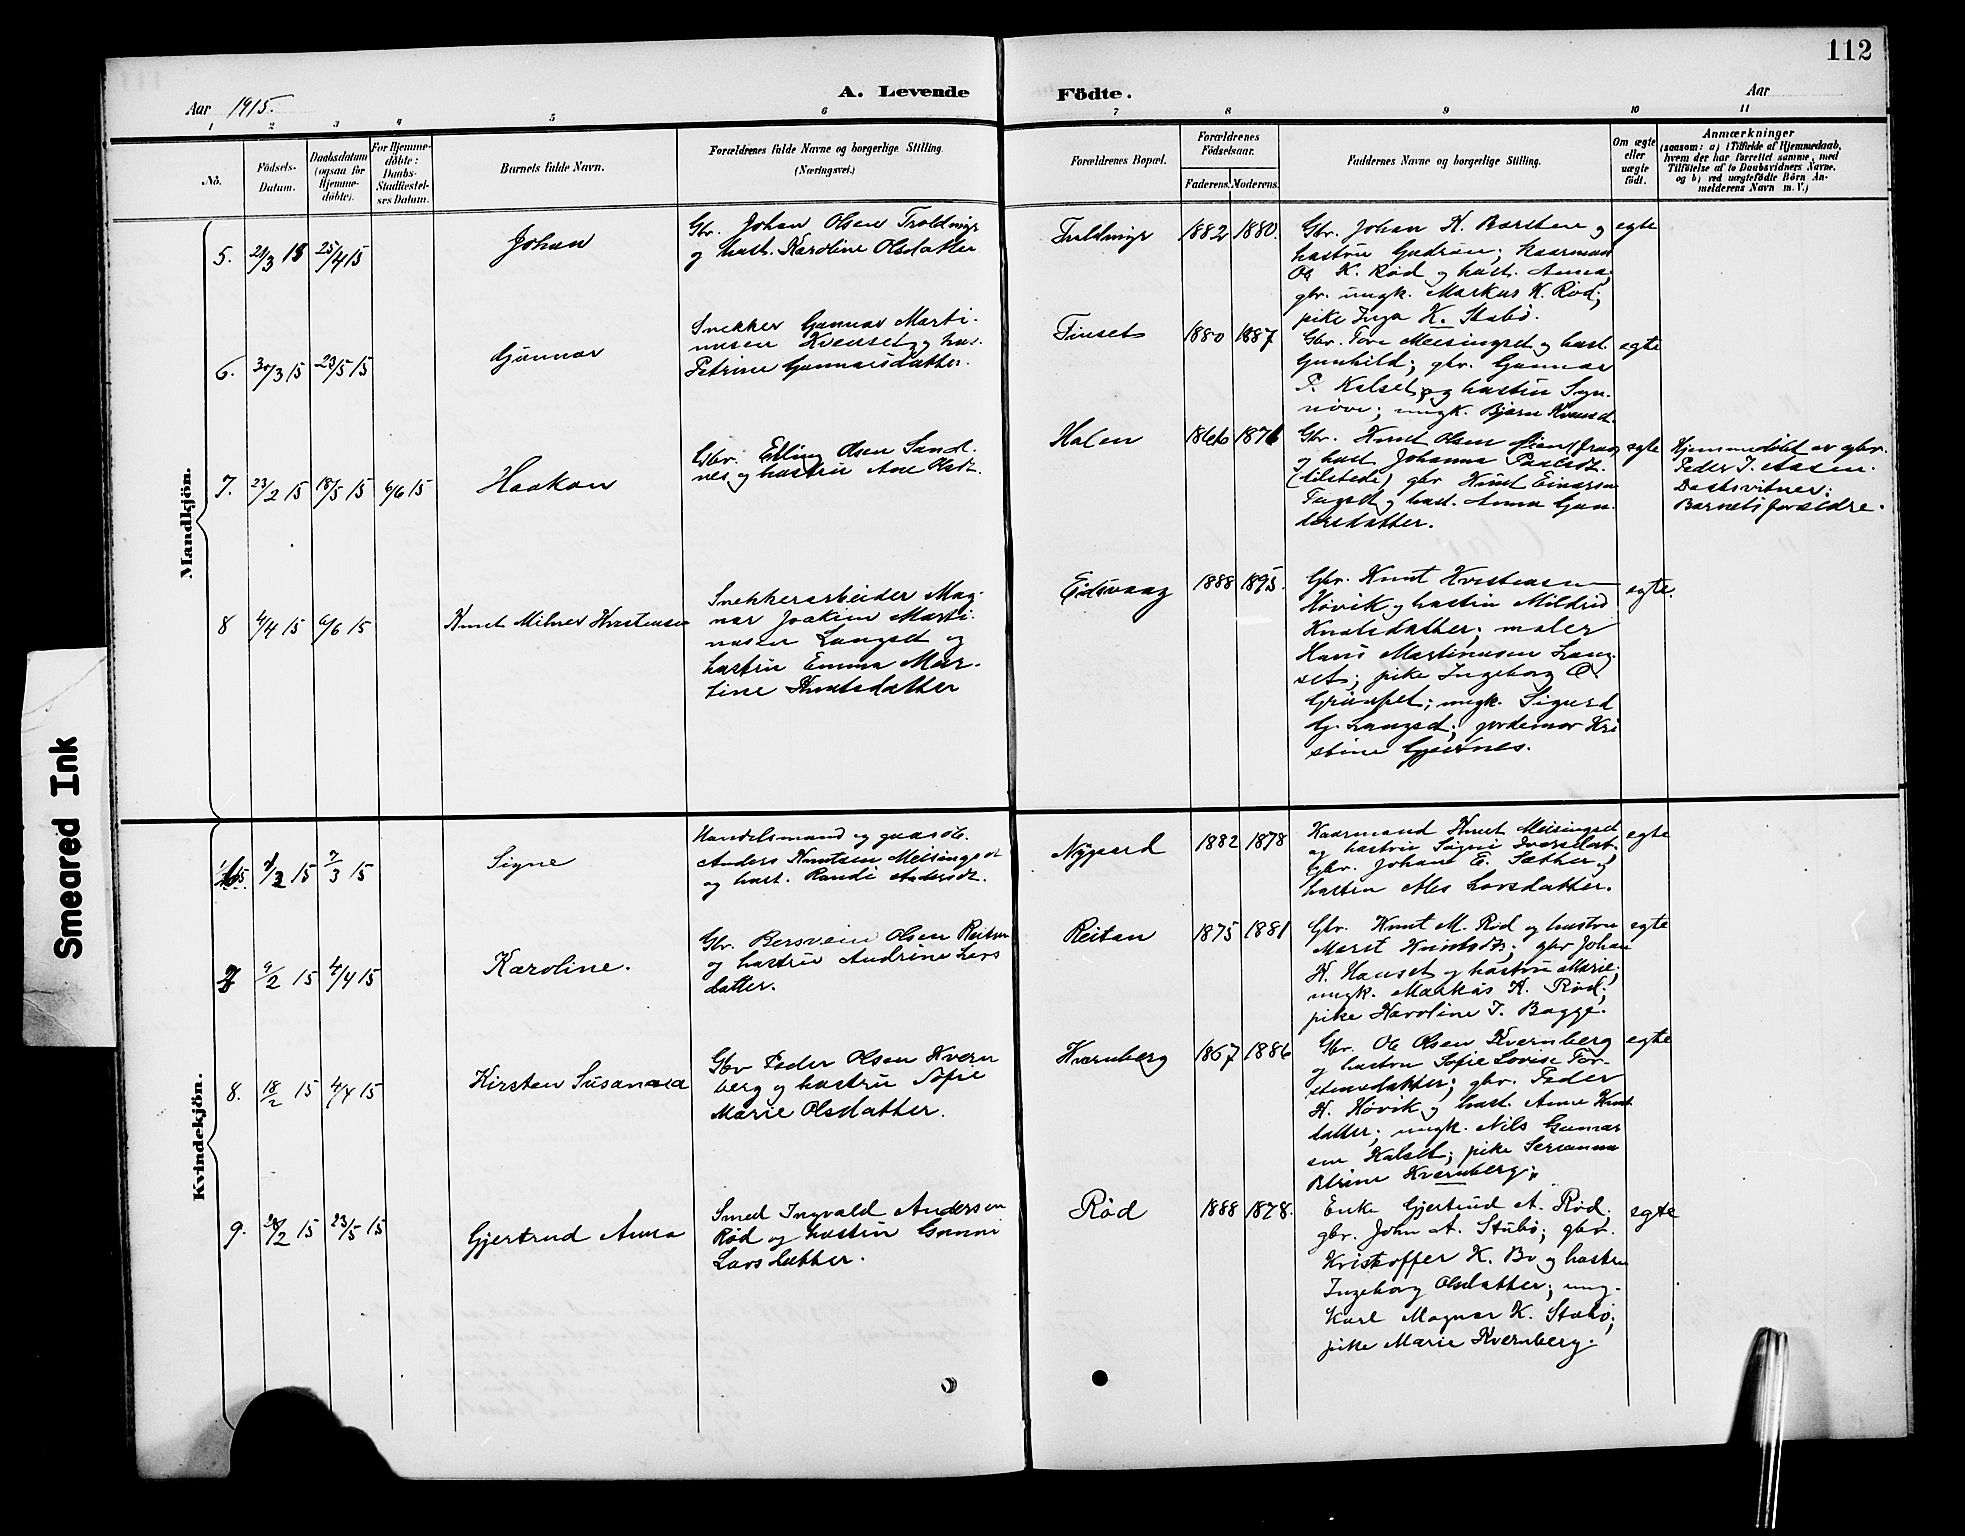 112
Aar 1915.
A. Levende
Födte.
Aar
1 2 3 4 5 6 7 8 9 10 11
No.
Födsels-Datum.
Daabsdatum (ogsaa for Hjemmedöbte).
For Hjemmedöbte: Daabs-Stadfæstelses Datum.
Barnets fulde Navn.
Forældrenes fulde Navne og borgerlige Stilling.
(Næringsvei.)
Forældrenes Bopæl.
Forældrenes Födselsaar.
Faderens. Moderens.
Faddernes Navne og borgerlige Stilling.
Om ægte eller uægte födt.
Anmærkninger
(saasom: a) i Tilfælde af Hjemmedaab,
hvem der har forrettet samme, med
Tilföielse af to Daabsvidners Navne,
og b) ved uægtefödte Börn An-
melderens Navn m. V.)
Mandkjön.
5. 21/3 15 25/4 15
Johan
Gbr. Johan Olsen Troldmyr
og hust. Karoline Olsdatter
Troldmyr
1882 1880.
Gbr. Johan K. Barsten og
hustru Gudrun; kaarmand
Ole K. Rød og hust. Anna;
gbr. ungk. Markus K. Rød;
pike Inga K. Stubø.
egte
6. 30/3 15 23/5 15
Gunnar
Snekker Gunnar Marti-
nusen Kvenset og hus.
Petrine Gunnarsdatter.
Tiuset
1880 1887
Gbr. Tore Meisingset og hust.
Gunhild; gbr. Gunnar
P. Kalset og hustru Syn-
nøve; ungk. Bjørn Kvenset.
egte
7. 23/2 15 18/5 15 6/6 15
Haakon
Gbr. Elling Olsen Sand-
nes og hustru Ane Olsdt.
Holen
1866 1876
Gbr. Knut Olsen
og hust. Johanna Paalsdt.
(tilstede) gbr Knut Einarsen
Tiuset og hust. Anna Gun-
darsdatter.
egte
Hjemmedøbt av gbr.
Peder I. Aasen.
Daabsvitner:
Barnets forældre.
8 4/4 15 6/6 15
Knut Milner Kristensen
Snekkerarbeider Mag-
nar Joakim Marti-
nusen Langset og
hustru Emma Mar-
tine Knutsdatter
Eidsvaag
1888 1895.
Gbr. Knut Kristensen
Høvik og hustru Mildrid
Knutsdatter; maler
Hans Martinusen Lang-
set; pike Ingeborg O
Grimset; ungk. Sigurd
G. Langset; jordemor Kri
stine Gjernes.
egte.
Kvindekjön.
15 7/3 15
Signe
Handelsmand og gaardb.
Anders Knutsen Meisingset
og hust. Randi Andersdt.
Nygaard
1882 1878
Kaarmand Knut Meisingset
og hustru Signi Iversdat.
Gbr. Johan E. Sæther og
hustru Ales Larsdatter.
egte
7 9/2 15 4/4 15
Karoline.
Gbr. Bersvein Olsen Reitan
og hustru Andrine Lars
datter.
Reitan
1875 1881
Gbr. Knut M. Rød og hustru
Marit Knutsdt; gbr Johan
K. Hanset og hustru Marie;
ungk. Markus K. Rød;
pike Karoline J. Bagge.
egte
8. 18/2 15 4/4 15
Kirsten Susanna
Gbr Peder Olsen Kvern
berg og hustru Sofie
Marie Olsdatter.
Kvernberg
1867 1886
Gbr. Ole Olsen Kvernberg
og hustru Sofie Lovise Tor-
stensdatter; gbr. Peder
K. Høvik og hust. Anne Knut
datter; ungk. Nils Gunnar
sen Kalset; pike Serianna
Petrine Kvernberg.
egte
9. 28/2 15 23/5 15
Gjertrud Anna
Smed Ingvald Andersen
Rød og hustru Gunni
Larsdatter.
Rød
1888 1878.
Enke Gjertrud A. Rød.
gbr. John A. Stubø; gbr.
Kristoffer K. Bø og hustru
Ingeborg Olsdatter; ung.
Karl Magnar K. Stubø;
pike Marie Kvernberg.
egte
Smeared Ink